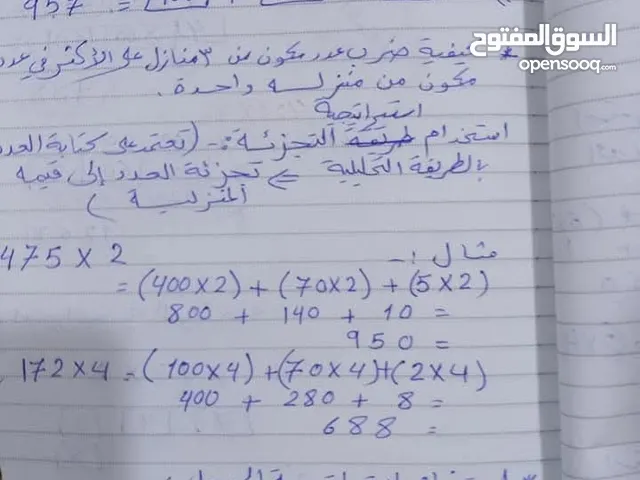 957 =
السوق المفتوح
opensooq.com
* كيفية ضرب عدد مكون من 3 منازل على الأكثر في عدد
مكون من منزلة واحدة.
استراتيجية
استخدام طريقة التجزئة :- (تعتمد على كتابة العدد
بالطريقة التحليلية => تجزئة العدد إلى قيمه
المنزلية )
مثال :- 475 × 2
= (400×2) + (70×2) + (5×2)
800 + 140 + 10 =
950 =
172×4 = (100×4) +(70×4)+(2×4)
400 + 280 + 8 =
688 =